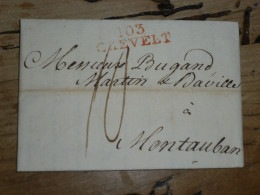 103
CREVELT
Messieurs Dugand
Martin & Daville
10
à
Montauban